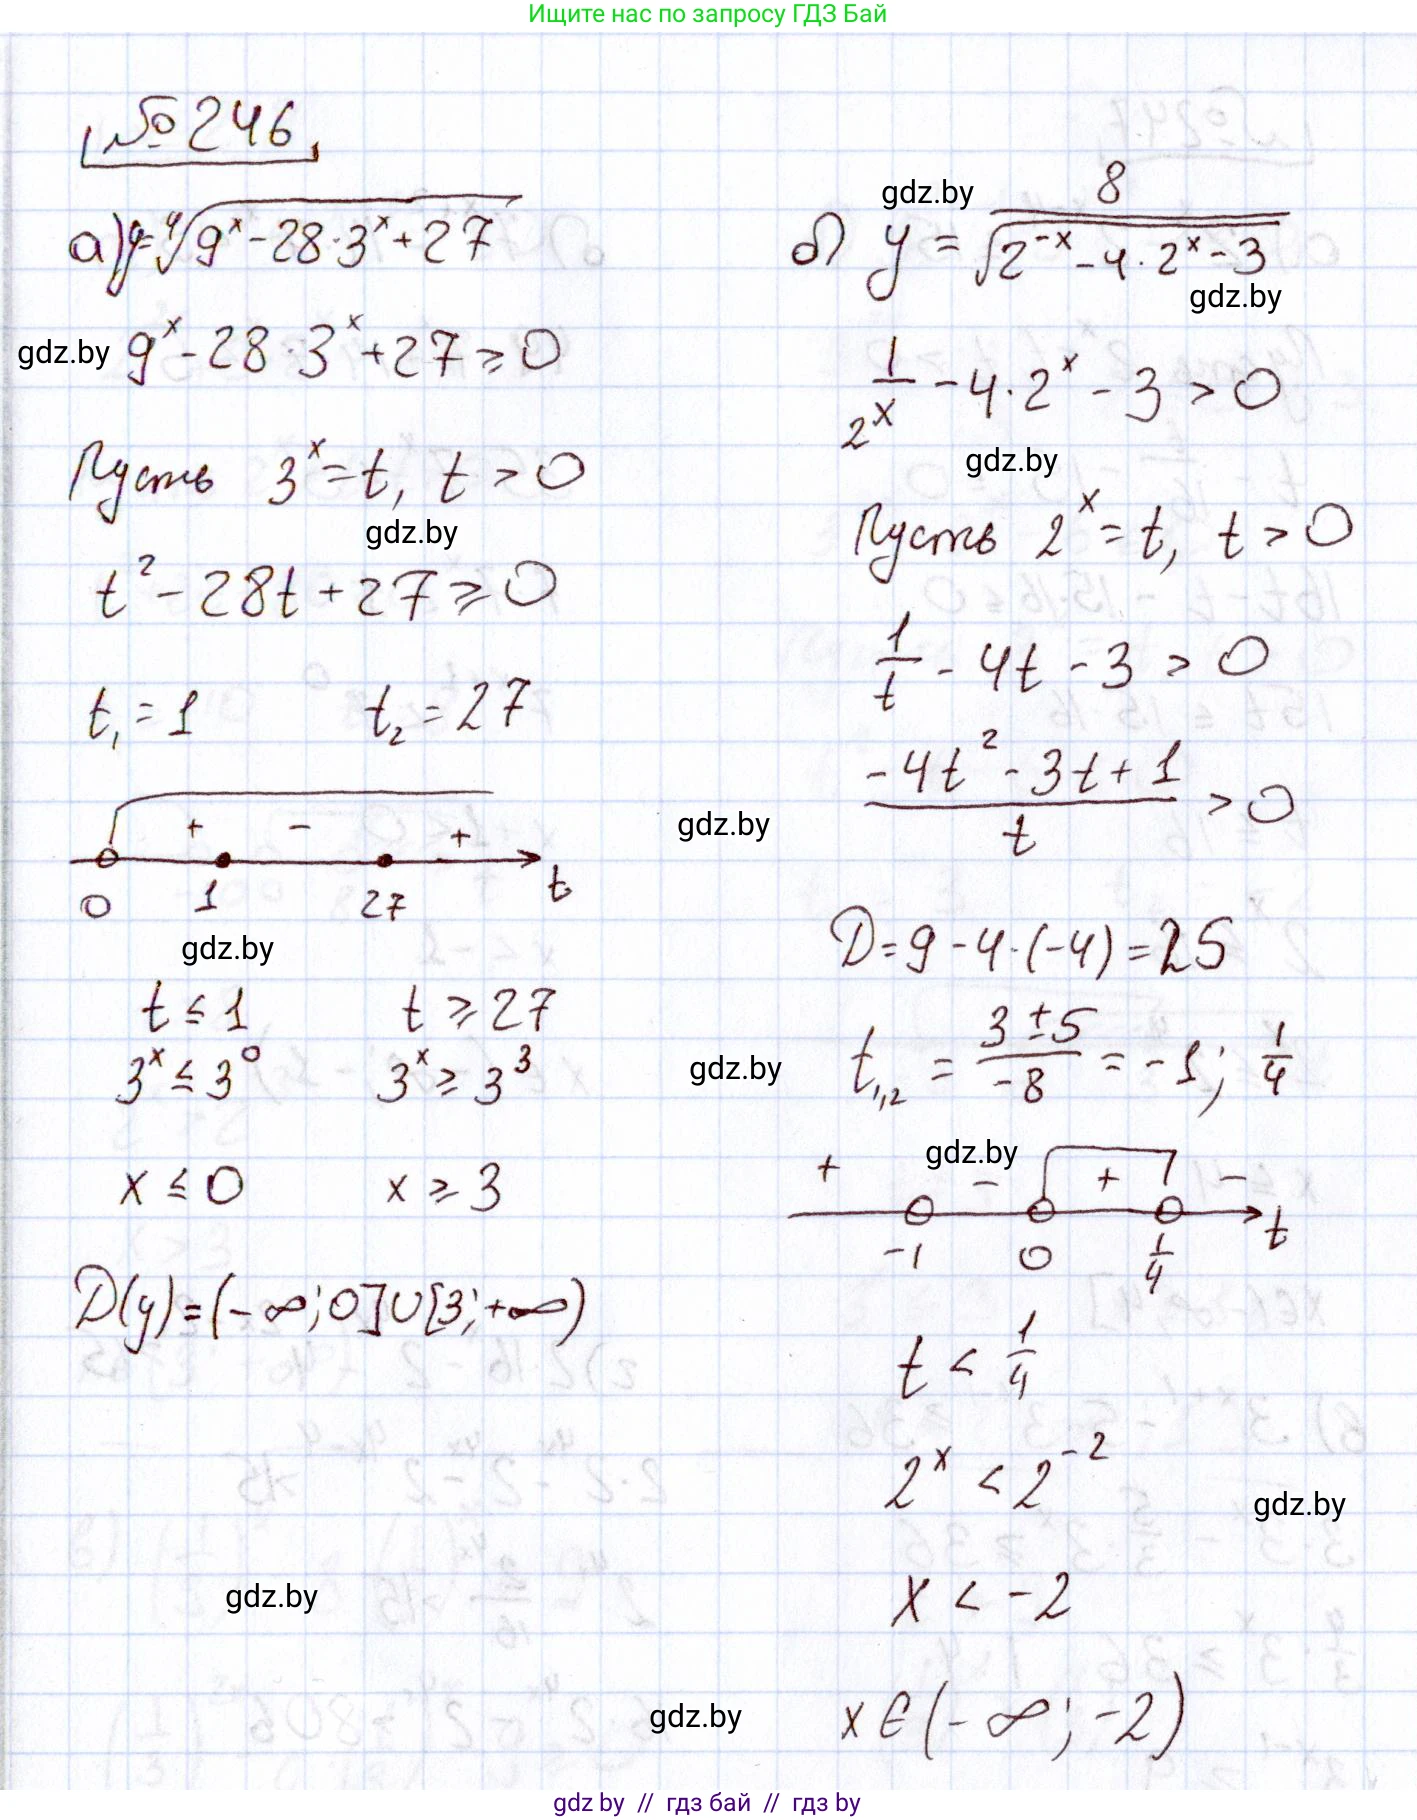 Ищите нас по запросу ГДЗ Бай
№246
а) y=⁴√(9ˣ-28·3ˣ+27)
gdz.by
9ˣ-28·3ˣ+27≥0
Пусть 3ˣ=t, t>0
gdz.by
t²-28t+27≥0
t₁=1 t₂=27
+ - +
0 1 27 t
gdz.by
t≤1 t≥27
3ˣ≤3⁰ 3ˣ≥3³
x≤0 x≥3
D(y)=(-∞;0]∪[3;+∞)
gdz.by
gdz.by
б) y=8/√(2⁻ˣ-4·2ˣ-3)
gdz.by
1/2ˣ-4·2ˣ-3>0
gdz.by
Пусть 2ˣ=t, t>0
1/t-4t-3>0
(-4t²-3t+1)/t>0
gdz.by
D=9-4·(-4)=25
t₁,₂=(3±5)/-8=-1; 1/4
gdz.by
gdz.by
+ - + -
-1 0 1/4 t
t<1/4
2ˣ<2⁻²
gdz.by
x<-2
gdz.by
x∈(-∞;-2)
gdz.by // гдз бай // гдз by